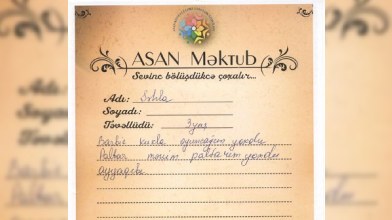 ASAN Məktub
Sevinc bölüşdükcə çoxalır...
Adı: Şəhla
Soyadı:
Təvəllüdü: 3 yaş
Barbie kukla oyuncağım yandı
Paltar mənim paltarım yandı
Ayyaqqabı